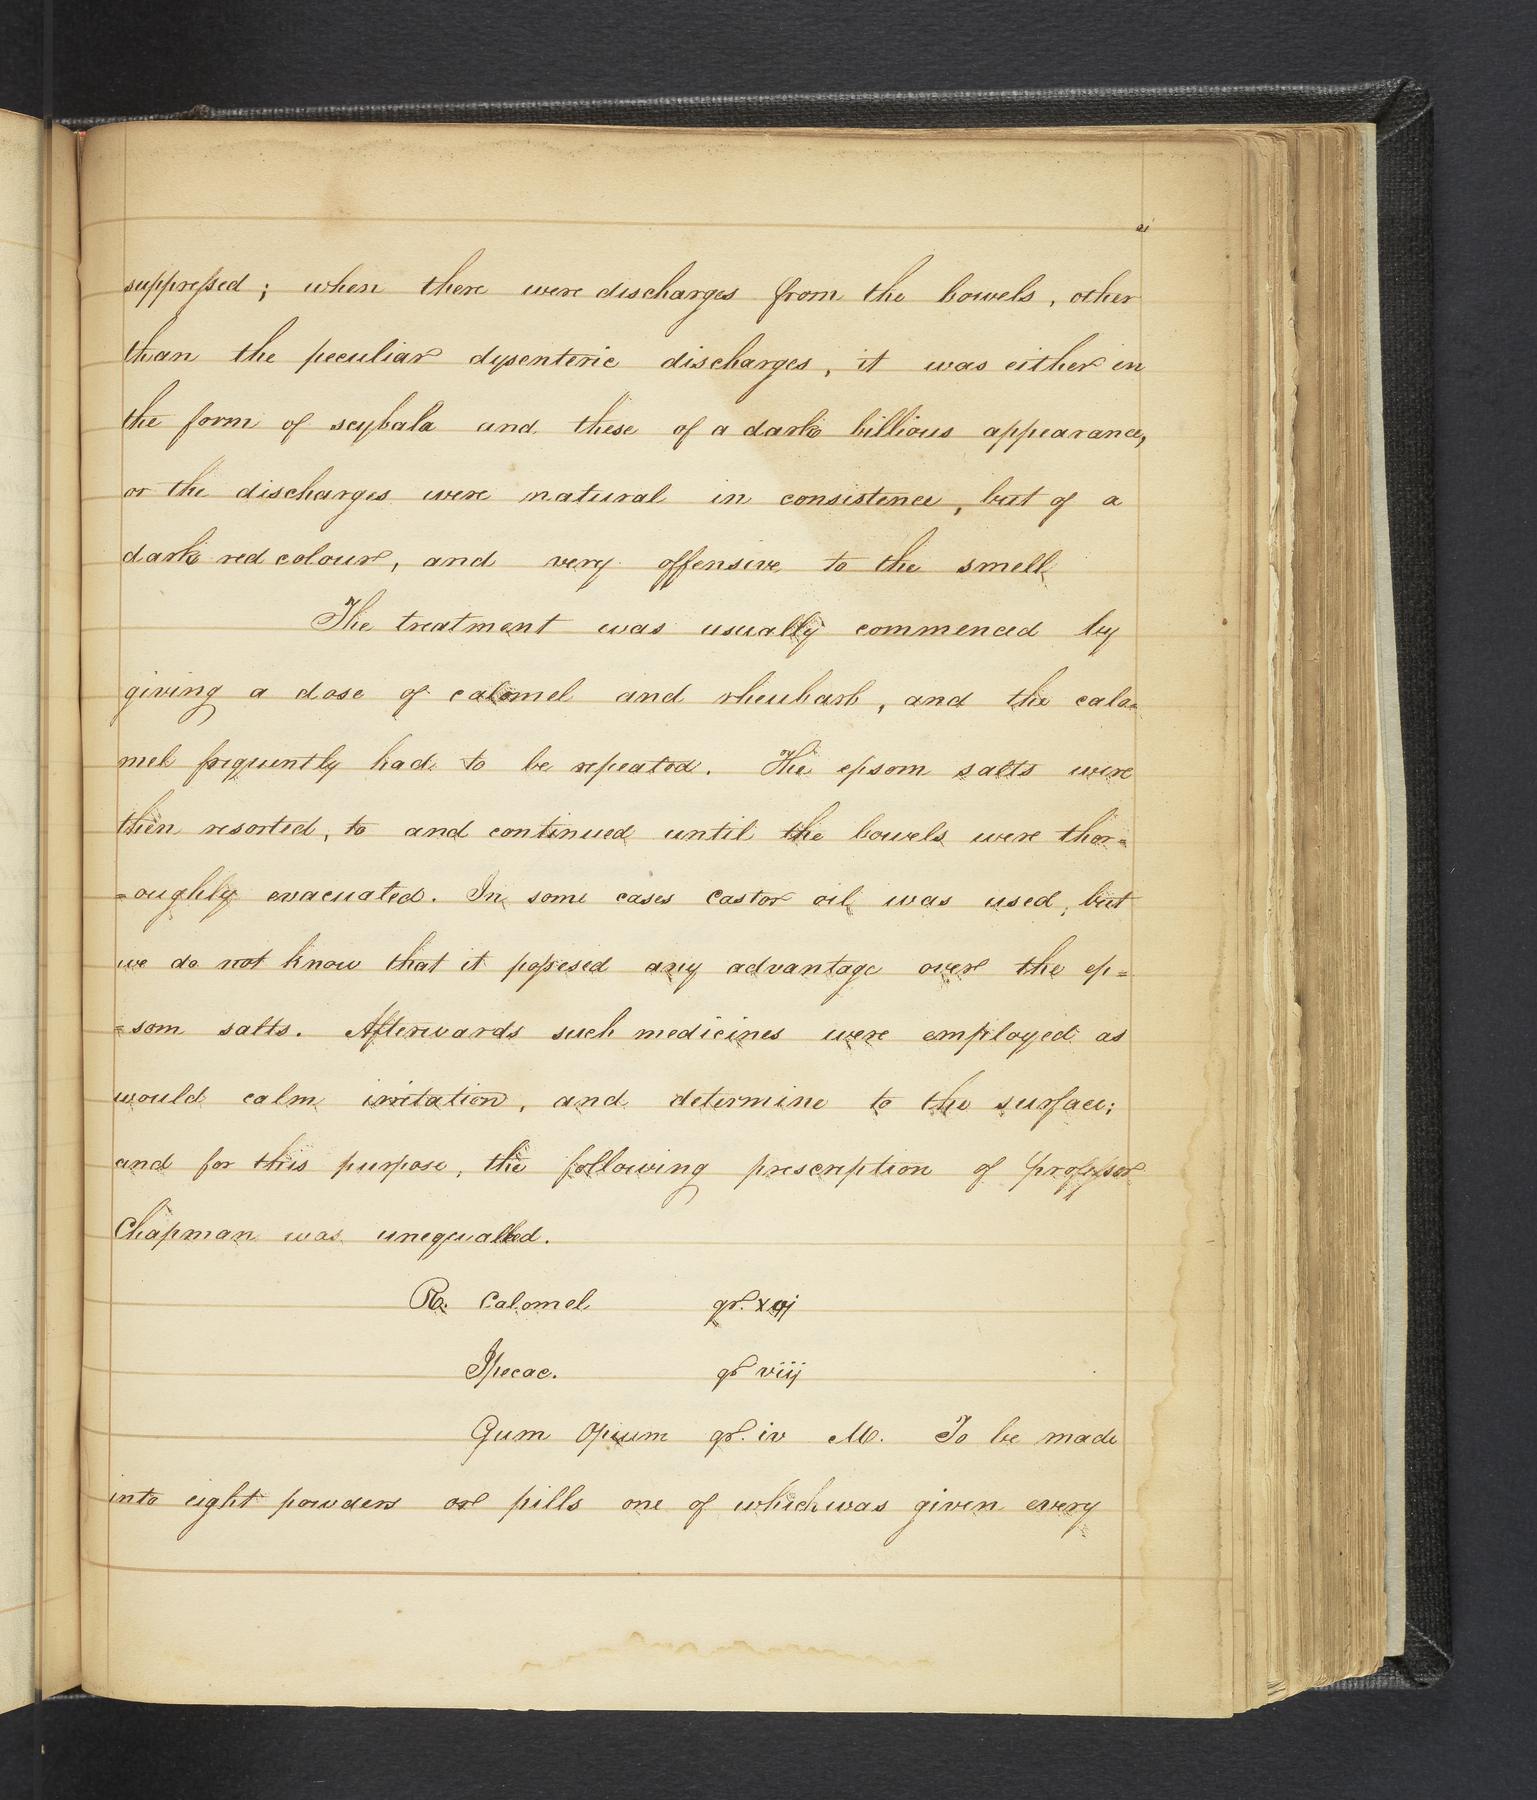 suppressed; when there were discharges from the bowels, other
than the peculiar dysenteric discharges, it was either in
the form of scybala and these of a dark billious appearance,
or the discharges were natural in consistence, but of a
dark red colour, and very offensive to the smell
The treatment was usually commenced by
giving a dose of calomel and rheubarb, and the calo=
mel frequently had to be repeated. The epsom salts were
then resorted, to and continued until the bowels were thor=
=oughly evacuated. In some cases castor oil was used, but
we do not know that it possesed any advantage over the ep=
=som salts. Afterwards such medicines were employed as
would calm irritation, and determine to the surface;
and for this purpose, the following prescription of professor
Chapman was unequalled.
R. Calomel gr. xvj
Ipecac. gr viij
Gum Opium gr. iv M. To be made
into eight powders or pills one of which was given every